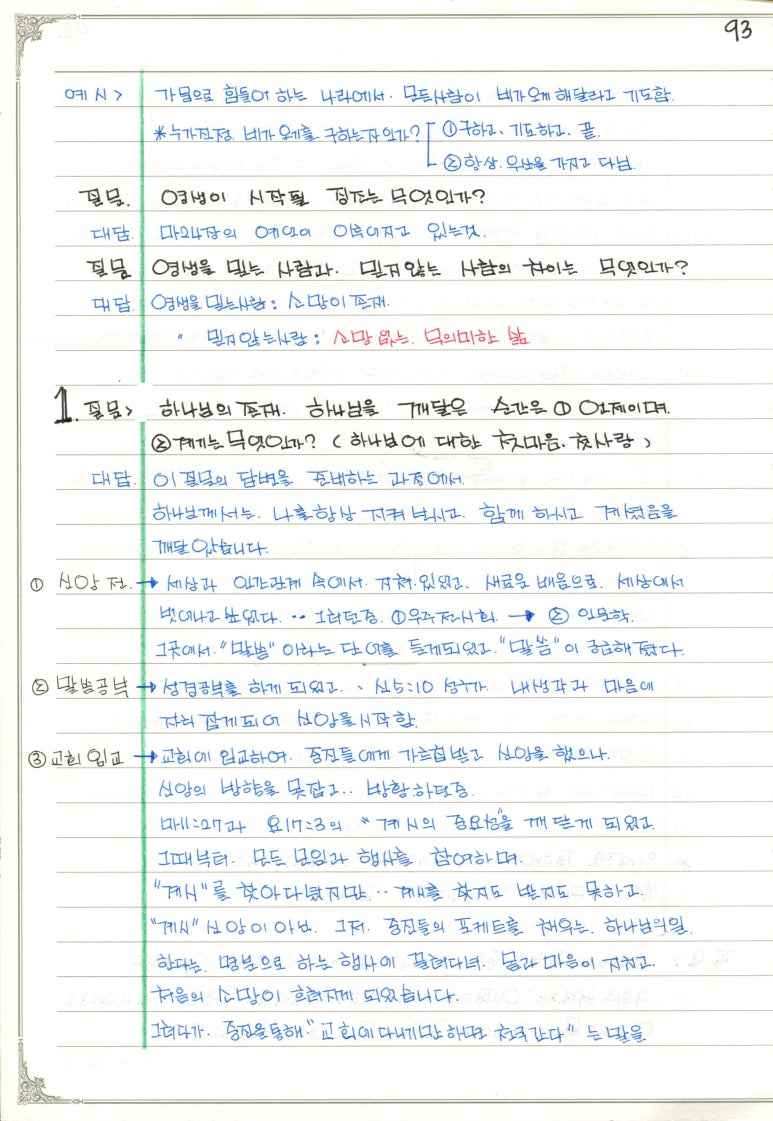 93
예시> 가뭄으로 힘들어 하는 나라에서. 모든사람이 비가오게 해달라고 기도함.
*누가진정. 비가 오기를 구하는자 인가? ①구하고, 기도하고, 끝.
②항상. 우산을 가지고 다님.
질문. 영생이 시작될 징조는 무엇인가?
대답. 마24장의 예언이 이루어지고 있는것.
질문 영생을 믿는 사람과. 믿지않는 사람의 차이는 무엇인가?
대답 영생을 믿는사람: 소망이 존재.
" 믿지않는사람: 소망 없는. 무의미한 삶.
1. 질문> 하나님의 존재. 하나님을 깨달은 순간은 ① 언제이며.
②계기는 무엇인가? (하나님에 대한 첫마음. 첫사랑)
대답. 이 질문의 답변을 준비하는 과정에서.
하나님께서는. 나를 항상 지켜 보시고. 함께 하시고 계셨음을
깨달았습니다.
① 신앙 전. → 세상과 인간관계 속에서. 지쳐있었고. 새로운 배움으로. 세상에서
벗어나고 싶었다. ‥ 그러던중. ①우주전시회. → ② 인문학.
그곳에서. "말씀" 이라는 단어를 듣게되었고. "말씀"이 궁금해졌다.
② 말씀공부 → 성경공부를 하게 되었고. 신5:10 성구가. 내생각과 마음에
자리 잡게되어 신앙을시작함.
③ 교회 입교 → 교회에 입교하여. 중진들에게 가르침받고 신앙을 했으나.
신앙의 방향을 못잡고.. 방황하던중.
마11:27과 요17:3의 "계시의 중요성"을 깨닫게 되었고.
그때부터. 모든 모임과 행사를 참여하며.
"계시"를 찾아다녔지만‥ 계시를 찾지도 받지도 못하고.
"계시" 신앙이 아닌. 그저. 중진들의 포케트를 채우는. 하나님의일.
한다는. 명분으로 하는 행사에 끌려다녀. 몸과 마음이 지치고.
처음의 소망이 흐려지게 되었습니다.
그러다가. 중진을통해. "교회에 다니기만 하면 천국간다" 는 말을